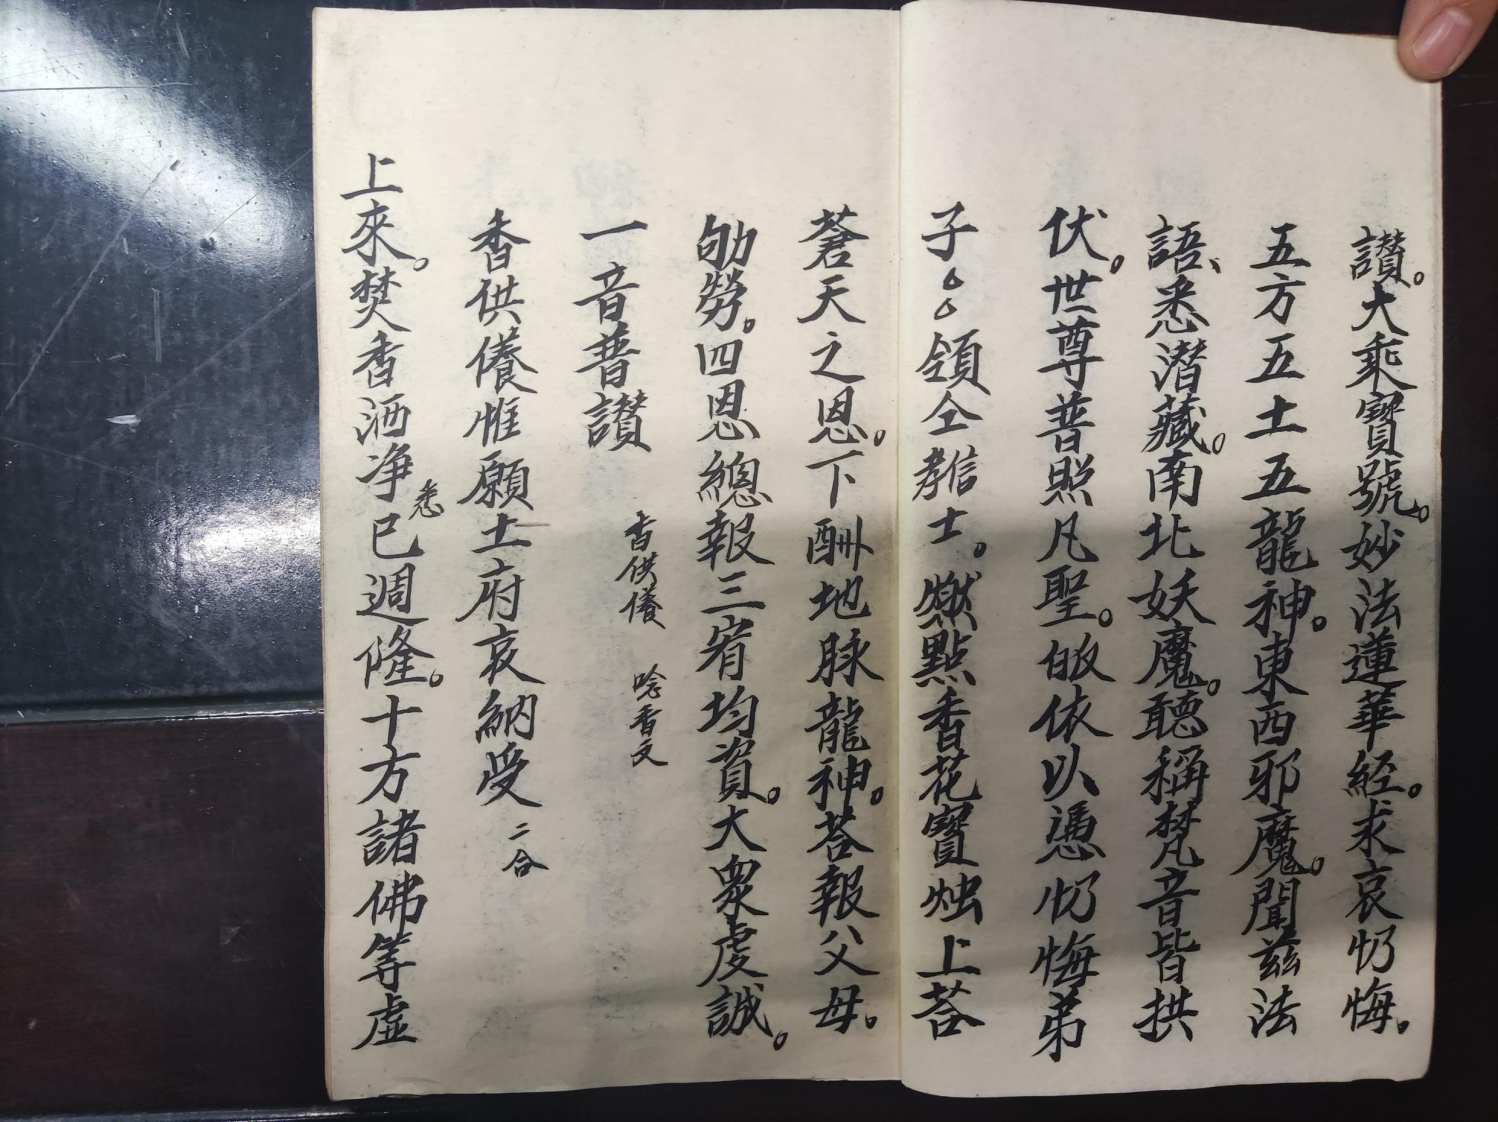 讃。大乘寳號。妙法蓮華經。求哀忏悔。
五方五土五龍神。東西邪魔。聞兹法
語、悉潛藏。南北妖魔。聽稱梵音皆拱
伏。世尊普照凡聖。皈依以憑忏悔弟
子。。領仝士。燃點香花寶烛上荅
蒼天之恩。下酬地脉龍神。荅報父母。
劬勞。四恩總報三宥均資。大衆虔誠。
一音普讃
香供偹 唸香文
香供偹惟願土府哀納受 二合
上來。焚香洒净悉已週隆。十方諸佛等虛